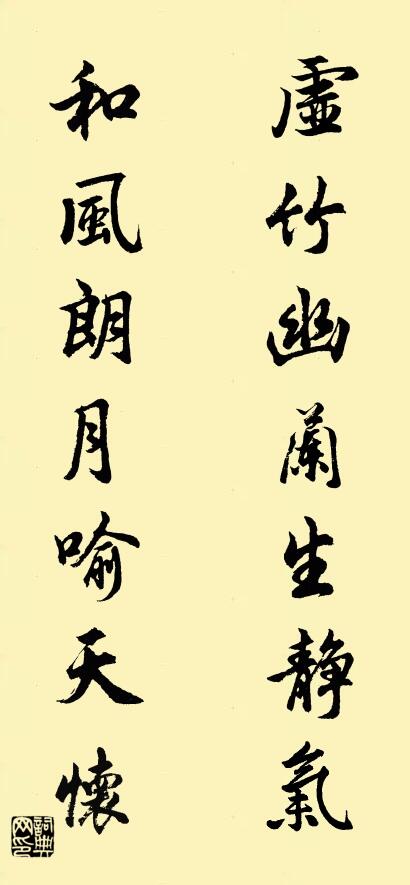 虛竹幽蘭生静氣
和風朗月喻天懷
詞典网印